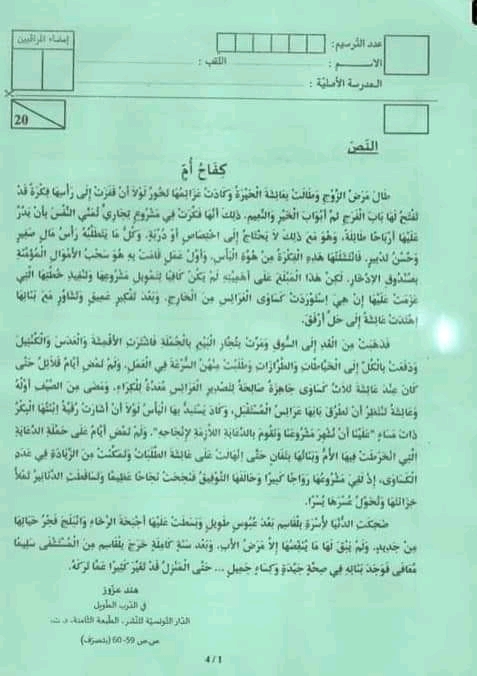 إمضاء المراقبين
عدد الترسيم:
الاسم: اللقب:
المدرسة الأصلية:
20
النص
كِفَاحُ أُمّ
طَالَ مَرَضُ الزَّوْجِ وَطَالَتْ بِعَائِشَةَ الْحَيْرَةُ وَكَادَتْ عَزَائِمُهَا تَخُورُ لَوْلاَ أَنْ قَفَزَتْ إِلَى رَأْسِهَا فِكْرَةٌ قَدْ
تَفْتَحُ لَهَا بَابَ الْفَرَجِ ثُمَّ أَبْوَابَ الْخَيْرِ وَالنَّعِيمِ. ذَلِكَ أَنَّهَا فَكَّرَتْ فِي مَشْرُوعٍ تِجَارِيٍّ تُمَنِّي النَّفْسَ بِأَنْ يَدُرَّ
عَلَيْهَا أَرْبَاحًا طَائِلَةً، وَهُوَ مَعَ ذَلِكَ لاَ يَحْتَاجُ إِلَى اخْتِصَاصٍ أَوْ دُرْبَةٍ. وَكُلُّ مَا يَتَطَلَّبُهُ رَأْسُ مَالٍ صَغِيرٍ
وَحُسْنُ تَدْبِيرٍ. فَانْتَشَلَتْهَا هَذِهِ الْفِكْرَةُ مِنْ هُوَّةِ الْيَأْسِ، وَأَوَّلُ عَمَلٍ قَامَتْ بِهِ هُوَ سَحْبُ الأَمْوَالِ الْمُؤَمَّنَةِ
بِصُنْدُوقِ الاِدِّخَارِ. لَكِنَّ هَذَا الْمَبْلَغَ عَلَى أَهَمِّيَّتِهِ لَمْ يَكُنْ كَافِيًا لِتَمْوِيلِ مَشْرُوعِهَا وَتَنْفِيذِ خُطَّتِهَا الَّتِي
عَزَمَتْ عَلَيْهَا إِنْ هِيَ اِسْتَوْرَدَتْ كَسَاوَى الْعَرَائِسِ مِنَ الْخَارِجِ. وَبَعْدَ تَفْكِيرٍ عَمِيقٍ وَتَشَاوُرٍ مَعَ بَنَاتِهَا
اِهْتَدَتْ عَائِشَةُ إِلَى حَلٍّ أَرْفَقَ.
فَذَهَبَتْ مِنَ الْغَدِ إِلَى السُّوقِ وَمَرَّتْ بِتُجَّارِ الْبَيْعِ بِالْجُمْلَةِ فَاشْتَرَتِ الأَقْمِشَةَ وَالْعَدَسَ وَالْكُنْتِيلَ
وَدَفَعَتْ بِالْكُلِّ إِلَى الْخَيَّاطَاتِ وَالطَّرَّازَاتِ وَطَلَبَتْ مِنْهُنَّ السُّرْعَةَ فِي الْعَمَلِ. وَلَمْ تَمْضِ أَيَّامٌ قَلاَئِلُ حَتَّى
كَانَ عِنْدَ عَائِشَةَ ثَلاَثُ كَسَاوَى جَاهِزَةٌ صَالِحَةٌ لِتَصْدِيرِ الْعَرَائِسِ مُعَدَّةٌ لِلْكِرَاءِ. وَمَضَى مِنَ الصَّيْفِ أَوَّلُهُ
وَعَائِشَةُ تَنْتَظِرُ أَنْ تَطْرُقَ بَابَهَا عَرَائِسُ الْمُسْتَقْبَلِ، وَكَادَ يَسْتَبِدُّ بِهَا الْيَأْسُ لَوْلاَ أَنْ أَشَارَتْ رُقَيَّةُ اِبْنَتُهَا الْبِكْرُ
ذَاتَ مَسَاءٍ "عَلَيْنَا أَنْ نُشْهِرَ مَشْرُوعَنَا وَنَقُومَ بِالدِّعَايَةِ اللاَّزِمَةِ لإِنْجَاحِهِ". وَلَمْ تَمْضِ أَيَّامٌ عَلَى حَمْلَةِ الدِّعَايَةِ
الَّتِي انْخَرَطَتْ فِيهَا الأُمُّ وَبَنَاتُهَا بِتَفَانٍ حَتَّى اِنْهَالَتْ عَلَى عَائِشَةَ الطَّلَبَاتُ وَتَمَكَّنَتْ مِنَ الزِّيَادَةِ فِي عَدَدِ
الْكَسَاوَى، إِذْ لَقِيَ مَشْرُوعُهَا رَوَاجًا كَبِيرًا وَحَالَفَهَا التَّوْفِيقُ فَنَجَحَتْ نَجَاحًا عَظِيمًا وَتَسَاقَطَتِ الدَّنَانِيرُ تَمْلأُ
خِزَانَتَهَا وَتُحَوِّلُ عُسْرَهَا يُسْرًا.
ضَحِكَتِ الدُّنْيَا لأُسْرَةِ بَلْقَاسِمِ بَعْدَ عُبُوسٍ طَوِيلٍ وَبَسَطَتْ عَلَيْهَا أَجْنِحَةَ الرَّخَاءِ وَانْبَلَجَ فَجْرُ حَيَاتِهَا
مِنْ جَدِيدٍ. وَلَمْ يَبْقَ لَهَا مَا يُنَغِّصُهَا إِلاَّ مَرَضُ الأَبِ. وَبَعْدَ سَنَةٍ كَامِلَةٍ خَرَجَ بَلْقَاسِمُ مِنَ الْمُسْتَشْفَى سَلِيمًا
مُعَافًى فَوَجَدَ بَنَاتِهِ فِي صِحَّةٍ جَيِّدَةٍ وَكِسَاءٍ جَمِيلٍ ... حَتَّى الْمَنْزِلُ قَدْ تَغَيَّرَ كَثِيرًا عَمَّا تَرَكَهُ.
هند عزوز
في الدرب الطويل
الدار التونسية للنشر، الطبعة الثامنة، د.ت،
ص ص 59-60 (بتصرف)
4/1